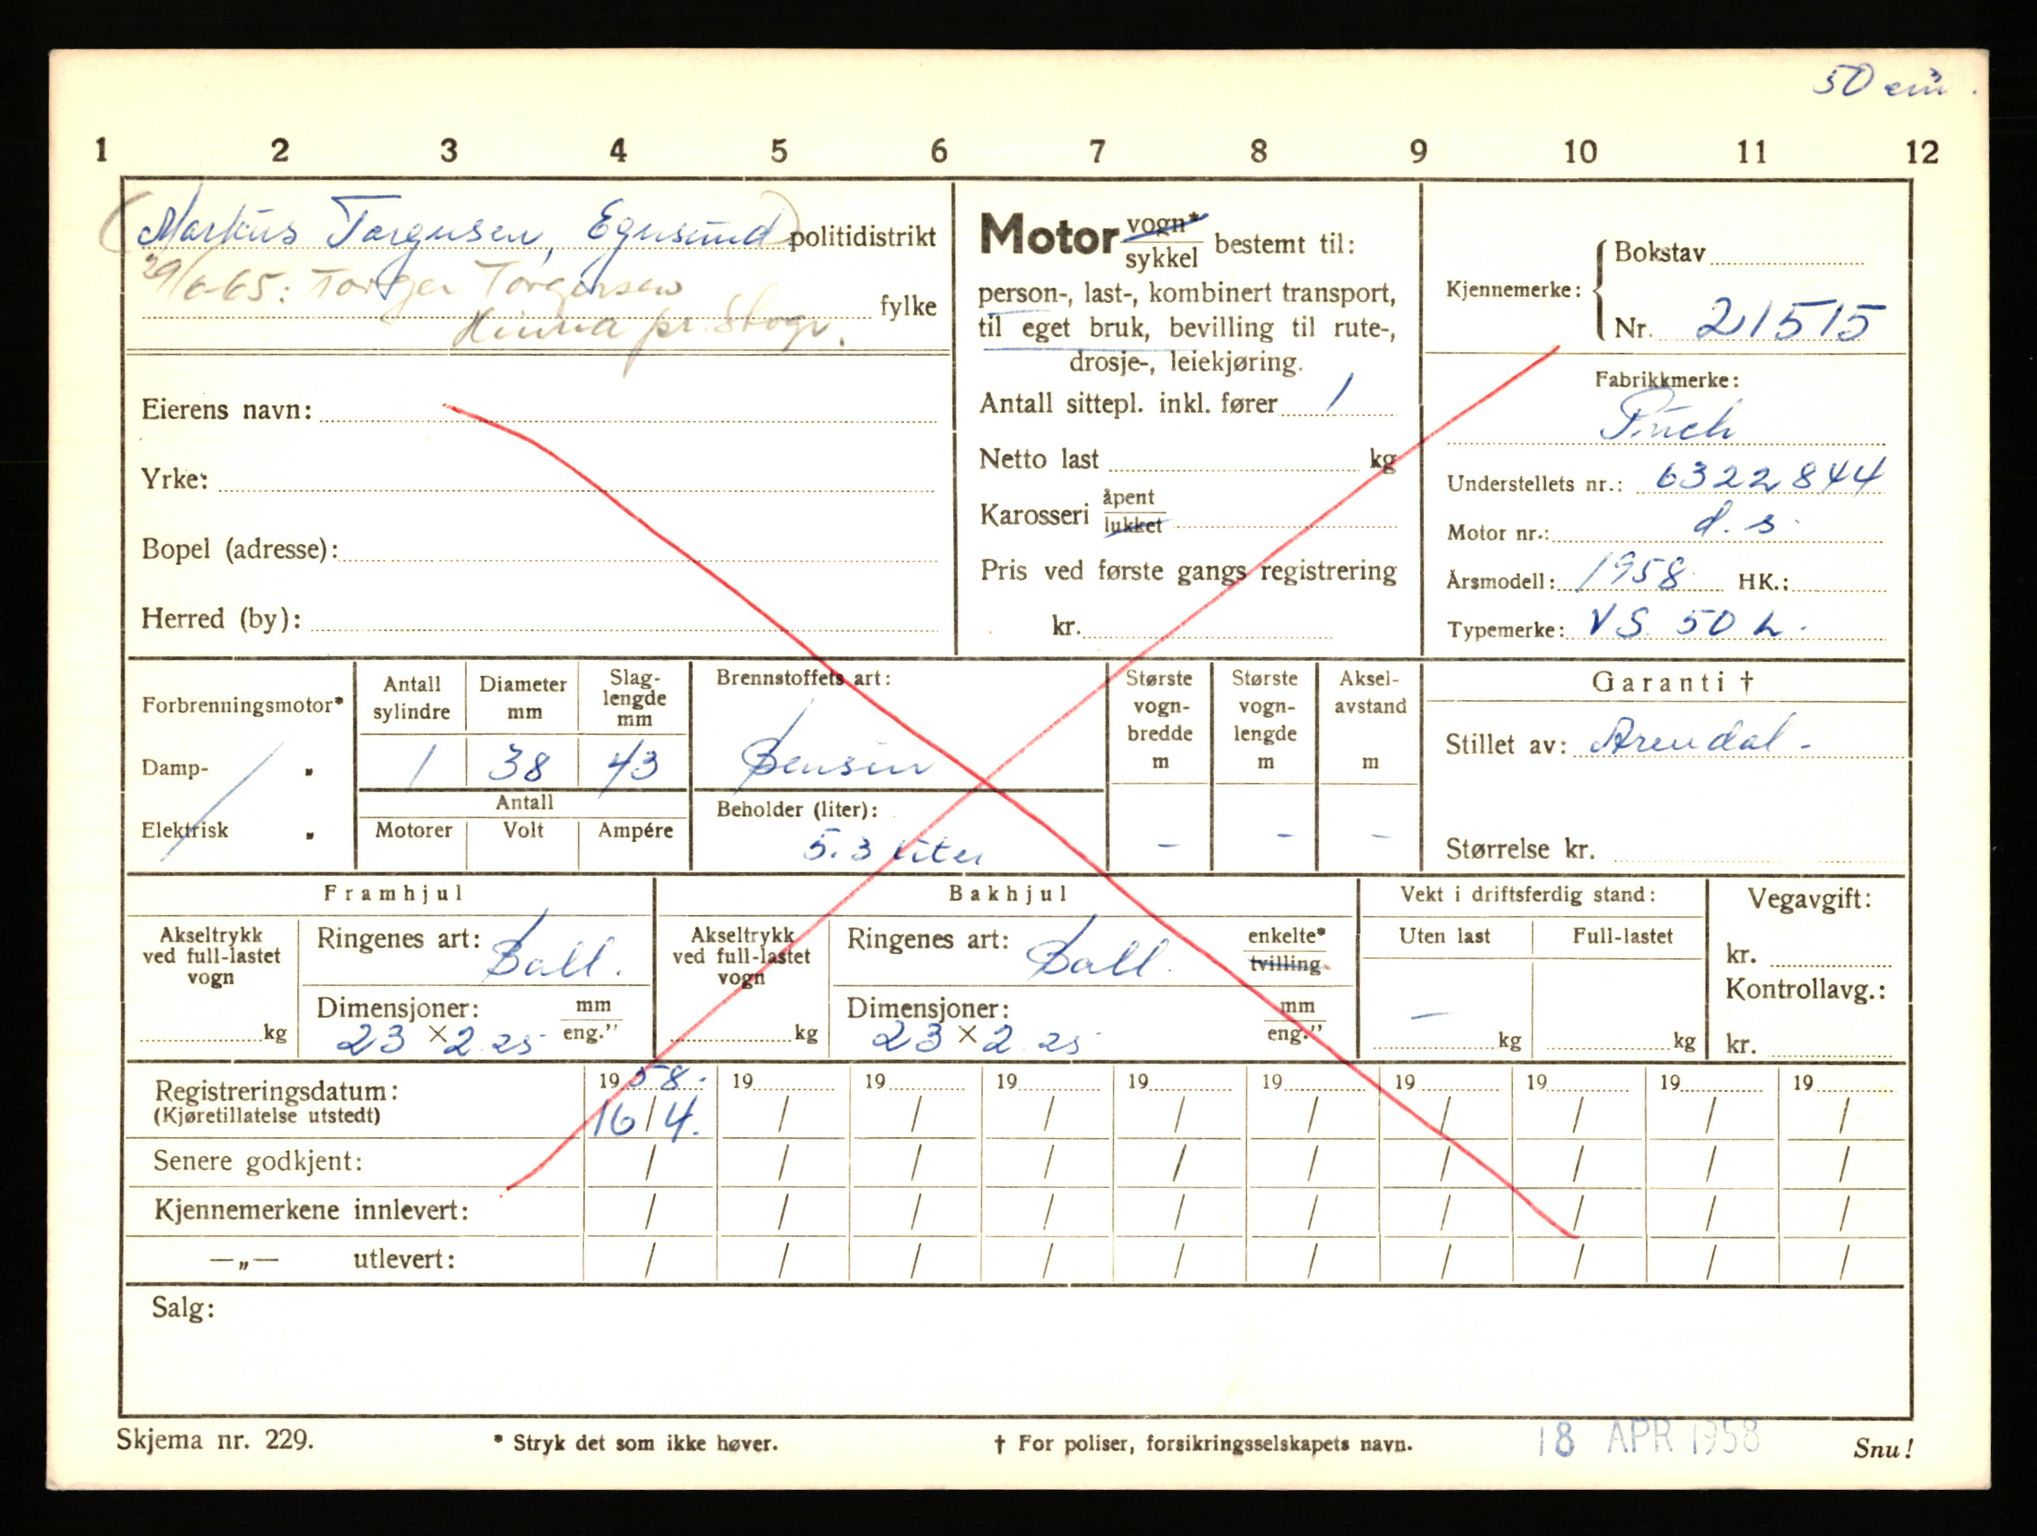 50 cm³.
1 2 3 4 5 6 7 8 9 10 11 12
(Markus Torgersen, Egersund) politidistrikt
29/6-65: Torger Torgersen
Hinna pr. Stvgr. fylke
Eierens navn:
Yrke:
Bopel (adresse):
Herred (by):
Motor vogn* sykkel bestemt til:
person-, last-, kombinert transport,
til eget bruk, bevilling til rute-,
drosje-, leiekjøring.
Antall sittepl. inkl. fører 1
Netto last kg
Karosseri åpent lukket
Pris ved første gangs registrering
kr.
Kjennemerke: Bokstav
Nr. 21515
Fabrikkmerke:
Puch
Understellets nr.: 6322844
Motor nr.: d. s.
Årsmodell: 1958 HK.:
Typemerke: VS. 50 L.
Forbrenningsmotor*
Damp- „
Elektrisk „
Antall sylindre Diameter mm Slaglengde mm
1 38 43
Antall
Motorer Volt Ampére
Brennstoffets art:
Bensin
Beholder (liter):
5.3 liter
Største vogn-bredde m
Største vogn-lengde m
Aksel-avstand m
– – –
Garanti †
Stillet av: Arendal -
Størrelse kr.
Framhjul
Akseltrykk ved full-lastet vogn
kg
Ringenes art: Ball.
Dimensjoner: mm eng."
23 × 2.25
Bakhjul
Akseltrykk ved full-lastet vogn
kg
Ringenes art: Ball. enkelte* tvilling
Dimensjoner: mm eng."
23 × 2.25
Vekt i driftsferdig stand:
Uten last Full-lastet
– kg kg
Vegavgift:
kr.
Kontrollavg.:
kr.
Registreringsdatum: 1958. 19 19 19 19 19 19 19 19 19
(Kjøretillatelse utstedt) 16/4. / / / / / / / / /
Senere godkjent: / / / / / / / / / /
Kjennemerkene innlevert: / / / / / / / / / /
—„— utlevert: / / / / / / / / / /
Salg:
Skjema nr. 229. * Stryk det som ikke høver. † For poliser, forsikringsselskapets navn. 18 APR 1958 Snu!